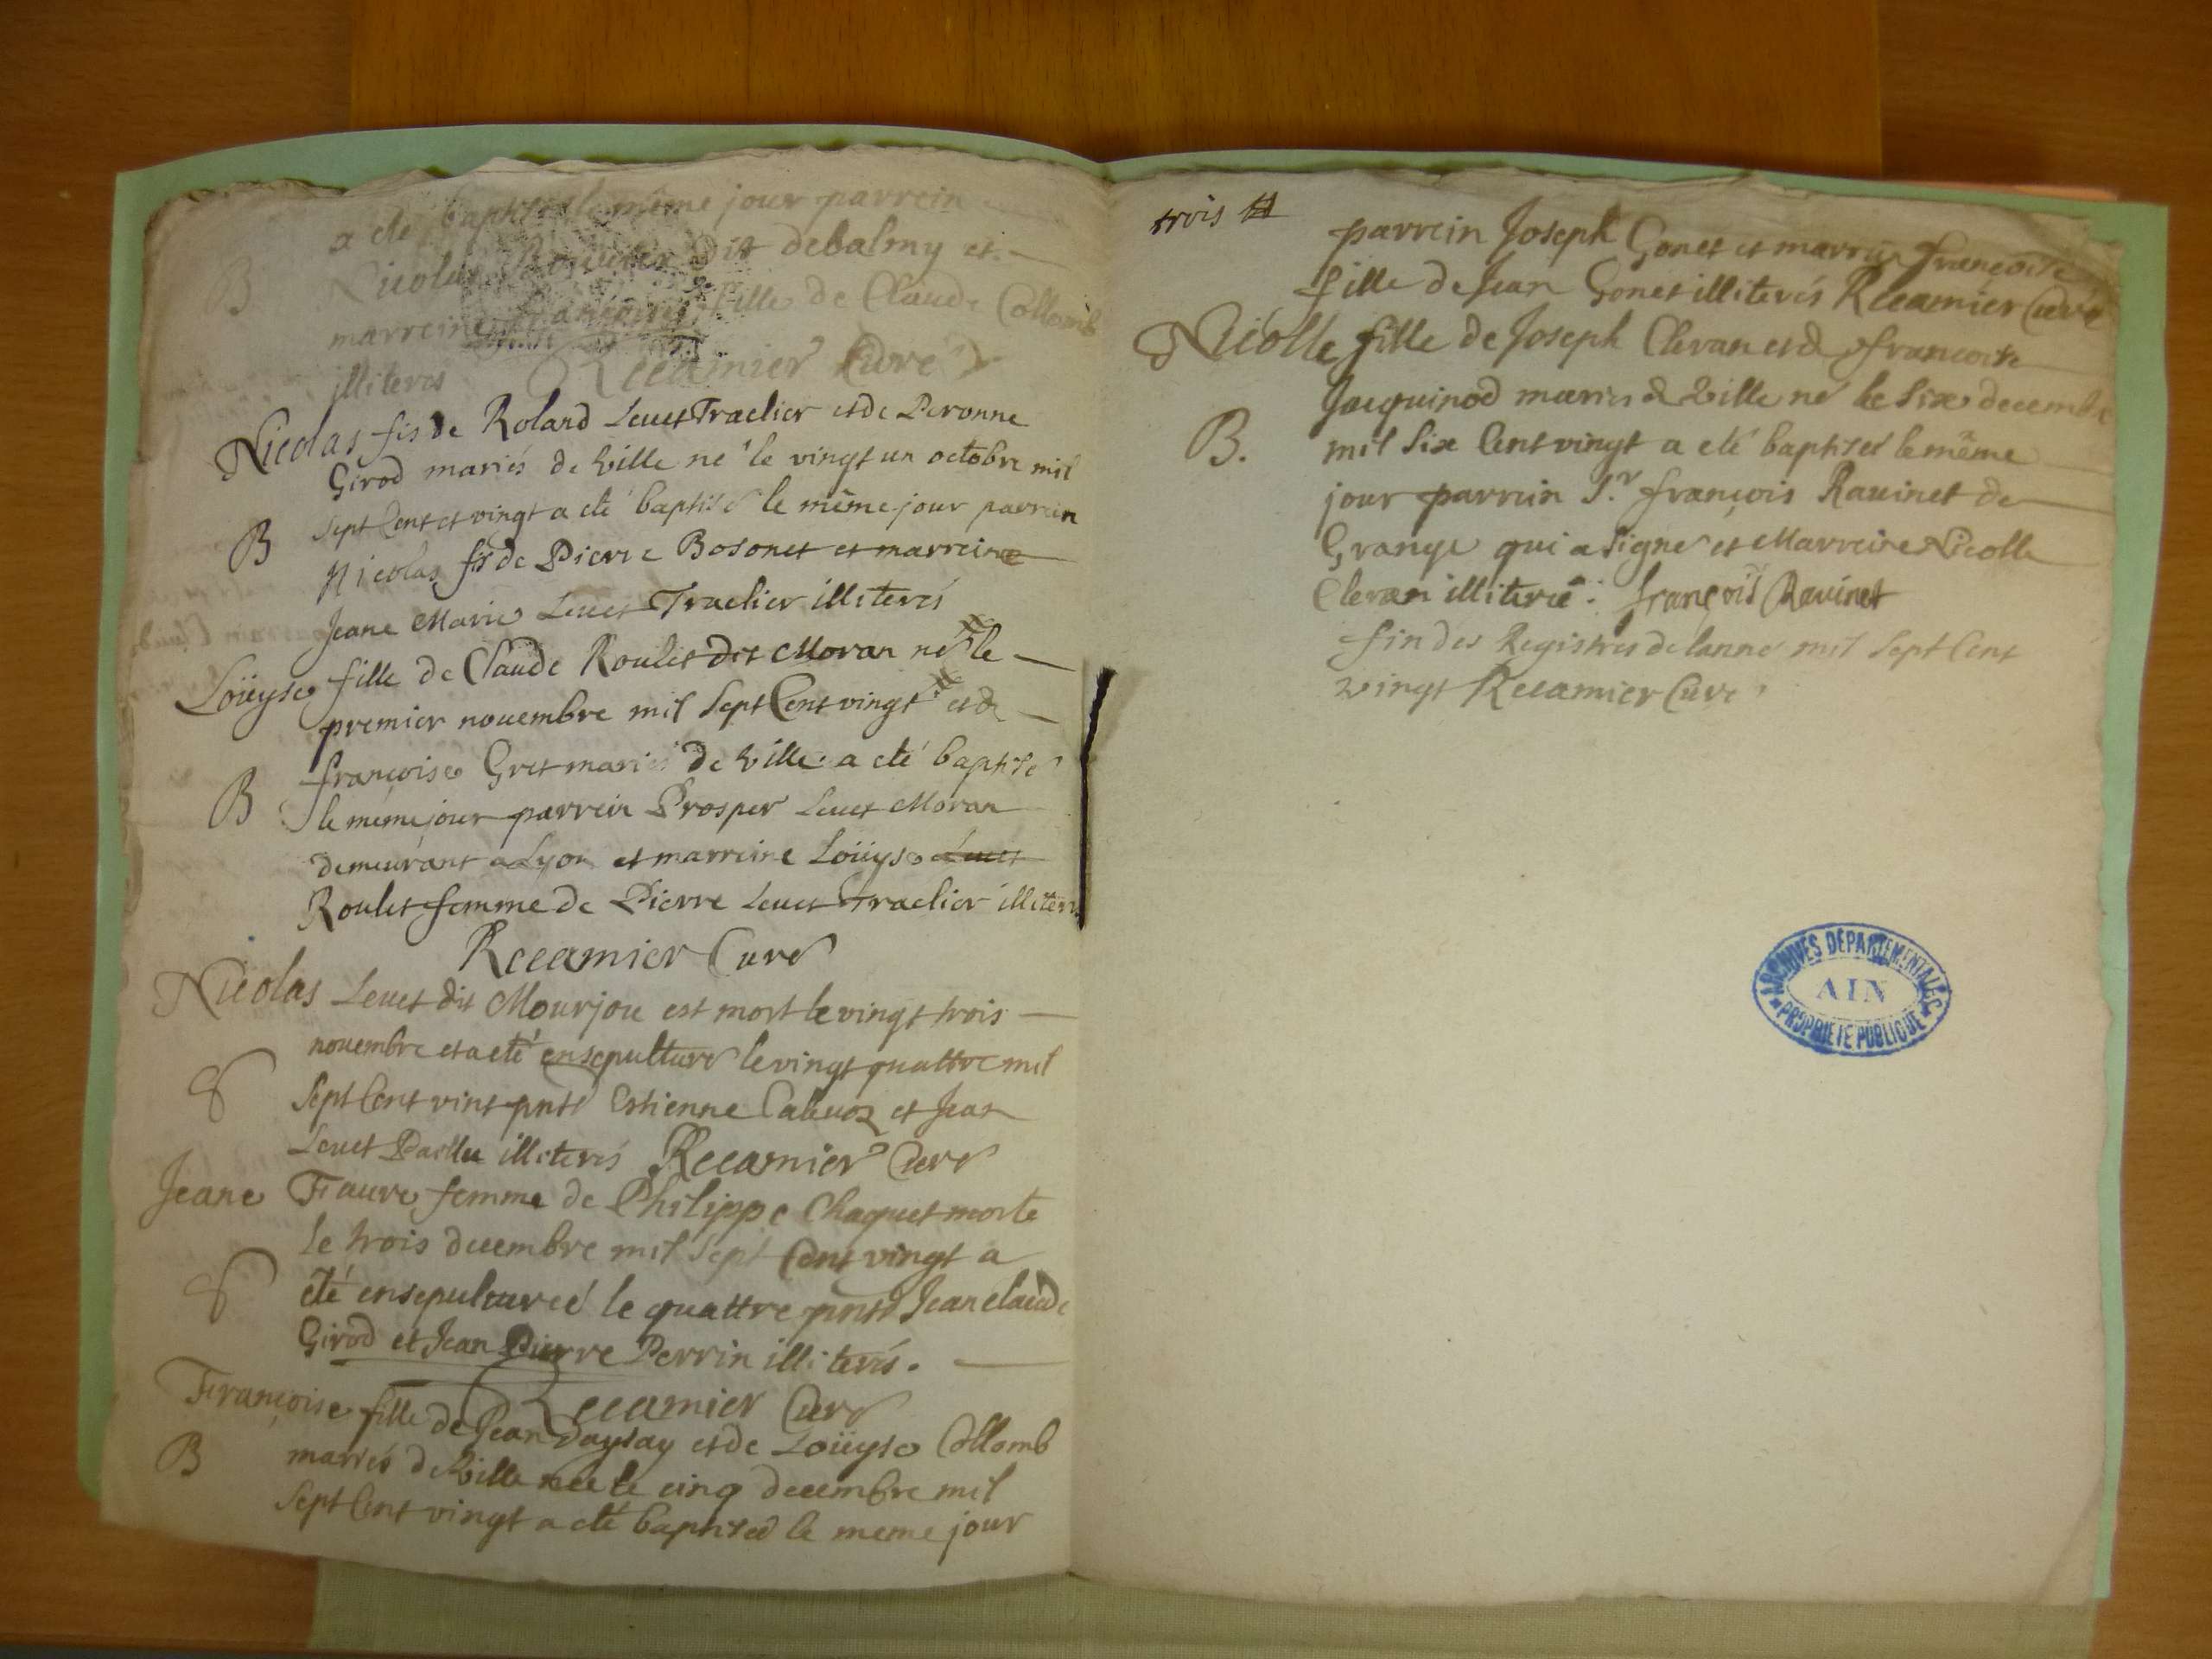 a eté baptisé le même jour parrein
B
Nicolas dit debalmy et
marreine françoise fille de Claude Collomb
illiterés Recamier Curé
Nicolas fis de Roland Levet Traclier et de Peronne
Girod mariés de Ville né le vingt un octobre mil
B
Sept Cent et vingt a eté baptisé le même jour parrein
Nicolas fis de Pierre Bosonet et marreine
Jeane Marie Levet Traclier illiterés
Loüyse fille de Claude Roulet dit Moran né le
premier novembre mil Sept Cent vingt et de
françoise Gret mariés de Ville a eté baptisé
B
le même jour parrein Prosper Levet Moran
demeurant a Lyon et marreine Loüyse Levet
Roulet femme de Pierre Levet Traclier illiterés
Recamier Curé
Nicolas Levet dit Mourjou est mort le vingt trois
novembre et a eté ensepulturé le vingt quattre mil
S
Sept Cent vint pnts Estienne Caluoz et Jean
Levet Paillu illiterés Recamier Curé
Jeane Faure femme de Philippe Chaquet morte
le trois decembre mil Sept Cent vingt a
S
eté ensepultureé le quattre pnts Jean claude
Girod et Jean Pierre Perrin illiterés.
Recamier Curé
Françoise fille de Jean Daysay et de Loüyse Collomb
B
mariés de Ville neé le cinq decembre mil
Sept Cent vingt a eté baptiseé le meme jour
trois
parrein Joseph Gonet et marreine françoise
fille de Jean Gonet illiterés Recamier Curé
Nicolle fille de Joseph Clevan et de françoise
Jacquinod mariés de Ville né le Six decembre
B.
mil Six Cent vingt a eté baptiseé le même
jour parrein S.r françois Ravinet de
Grange qui a signé et Marreine Nicolle
Clevan illitereé. françois Ravinet
fin des Registres de lanné mil Sept Cent
vingt Recamier Curé
ARCHIVES DÉPARTEMENTALES
AIN
PROPRIÉTÉ PUBLIQUE